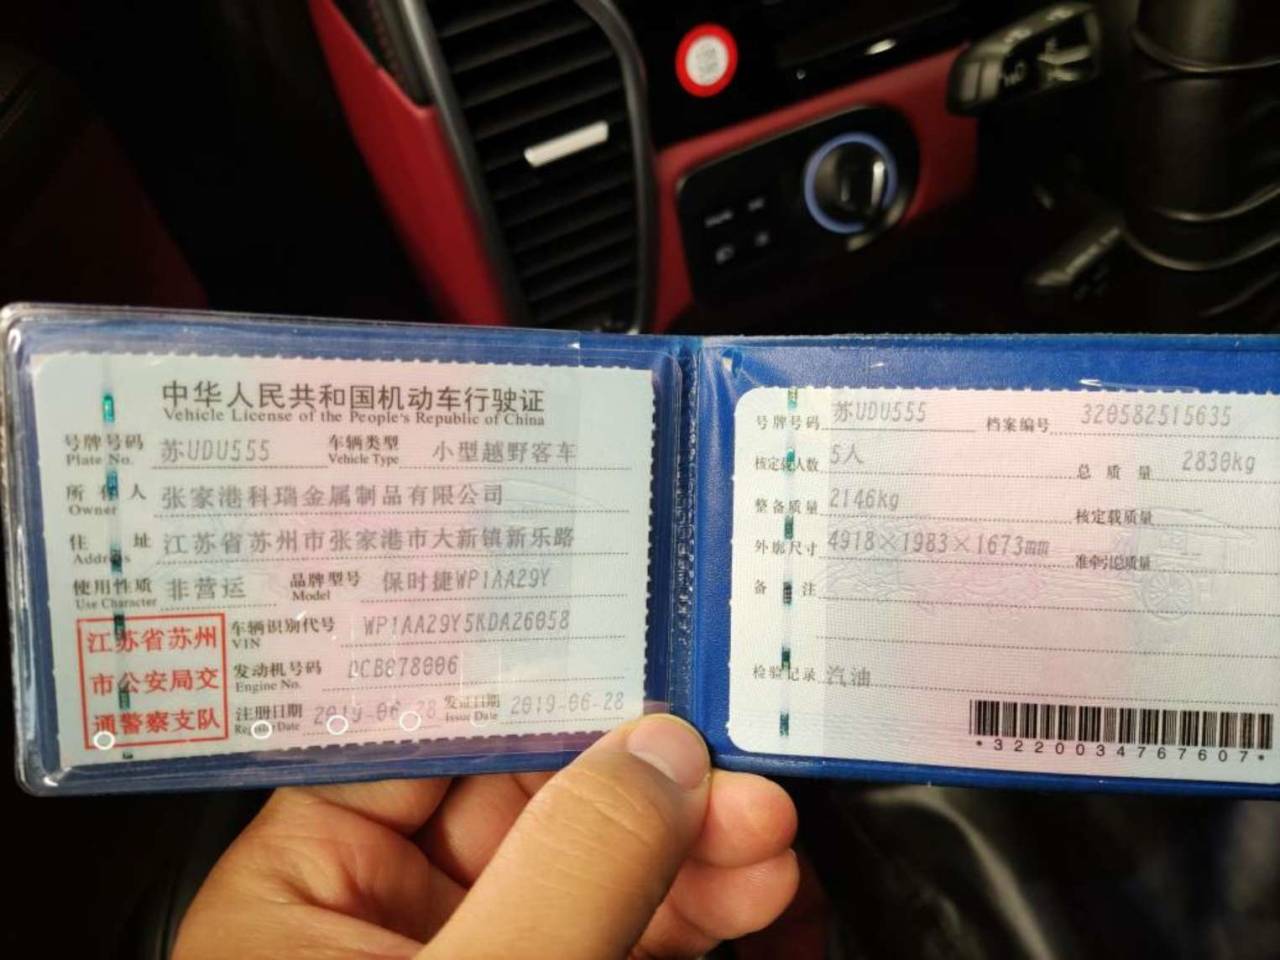 中华人民共和国机动车行驶证
Vehicle License of the People's Republic of China
号牌号码 苏UDU555 车辆类型 小型越野客车
Plate No. Vehicle Type
所有人 张家港科瑞金属制品有限公司
Owner
住址 江苏省苏州市张家港市大新镇新乐路
Address
使用性质 非营运 品牌型号 保时捷WP1AA29Y
Use Character Model
江苏省苏州
市公安局交
通警察支队
车辆识别代号 WP1AA29Y5KDA26058
VIN
发动机号码 DCB078006
Engine No.
注册日期 2019-06-28 发证日期 2019-06-28
Register Date Issue Date
号牌号码 苏UDU555 档案编号 320582515635
核定载人数 5人 总质量 2830kg
整备质量 2146kg 核定载质量
外廓尺寸 4918×1983×1673mm 准牵引总质量
备注
检验记录 汽油
*3220034767607*